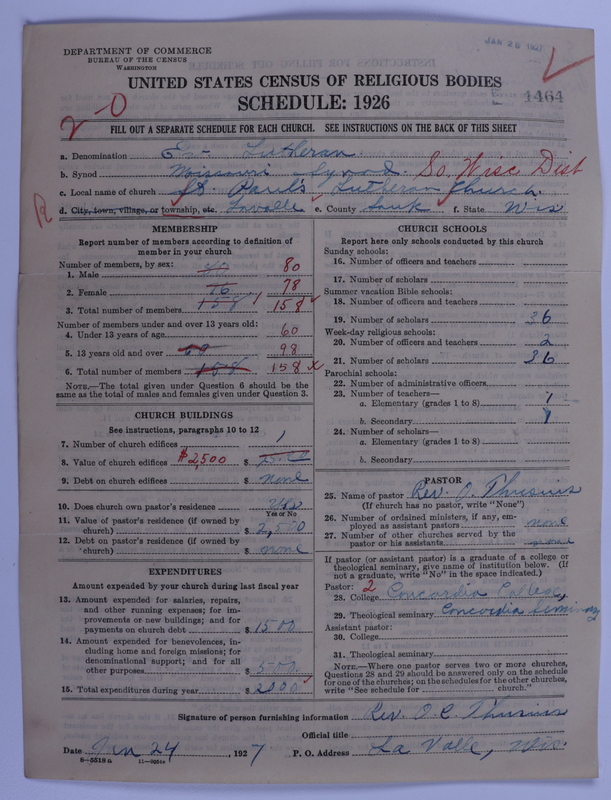 DEPARTMENT OF COMMERCE
BUREAU OF THE CENSUS
WASHINGTON
JAN 26 192
1464
UNITED STATES CENSUS OF RELIGIOUS BODIES
SCHEDULE: 1926
2-0
FILL OUT A SEPARATE SCHEDULE FOR EACH CHURCH. SEE INSTRUCTIONS ON THE BACK OF THIS SHEET
a. Denomination Ev. Lutheran
b. Synod Missouri Synod So. Wisc Dist
c. Local name of church St. Paul's Lutheran Church
R d. City, town, village, or township, etc. Lavalle e. County Sauk f. State Wis
MEMBERSHIP
Report number of members according to definition of member in your church
Number of members, by sex:
1. Male 80
2. Female 76 78
3. Total number of members 158 158
Number of members under and over 13 years old:
4. Under 13 years of age 60
5. 13 years old and over 98
6. Total number of members 158 158
NOTE.—The total given under Question 6 should be
same as the total of males and females given under Question 3.
CHURCH BUILDINGS
See instructions, paragraphs 10 to 12
7. Number of church edifices 1
8. Value of church edifices $2,500 $
9. Debt on church edifices $ none
10. Does church own pastor's residence Yes
Yes or No
11. Value of pastor's residence (if owned by
church) $ 2,500
12. Debt on pastor's residence (if owned by
church) $ none
EXPENDITURES
Amount expended by your church during last fiscal year
13. Amount expended for salaries, repairs,
and other running expenses; for im-
provements or new buildings; and for
payments on church debt $ 1500
14. Amount expended for benevolences, in-
cluding home and foreign missions; for
denominational support; and for all
other purposes $ 500
15. Total expenditures during year $ 2000
CHURCH SCHOOLS
Report here only schools conducted by this church
Sunday schools:
16. Number of officers and teachers
17. Number of scholars
Summer vacation Bible schools:
18. Number of officers and teachers
19. Number of scholars 36
Week-day religious schools:
20. Number of officers and teachers 2
21. Number of scholars 36
Parochial schools:
22. Number of administrative officers
23. Number of teachers—
a. Elementary (grades 1 to 8) 1
b. Secondary 1
24. Number of scholars—
a. Elementary (grades 1 to 8)
b. Secondary
PASTOR
25. Name of pastor Rev. O. Thusius
(If church has no pastor, write "None")
26. Number of ordained ministers, if any, em-
ployed as assistant pastors none
27. Number of other churches served by the
pastor or his assistants
If pastor (or assistant pastor) is a graduate of a college or
theological seminary, give name of institution below. (If
not a graduate, write "No" in the space indicated.)
Pastor: 2
28. College Concordia College,
29. Theological seminary Concordia Seminary
Assistant pastor:
30. College
31. Theological seminary
NOTE.—Where one pastor serves two or more churches,
Questions 28 and 29 should be answered only on the schedule
for one of the churches; on the schedules for the other churches,
write "See schedule for church."
Signature of person furnishing information Rev. O. C. Thusius
Official title
Date Jan 24, 1927 P. O. Address La Valle, Wis.
8—5518 a 11—9354a